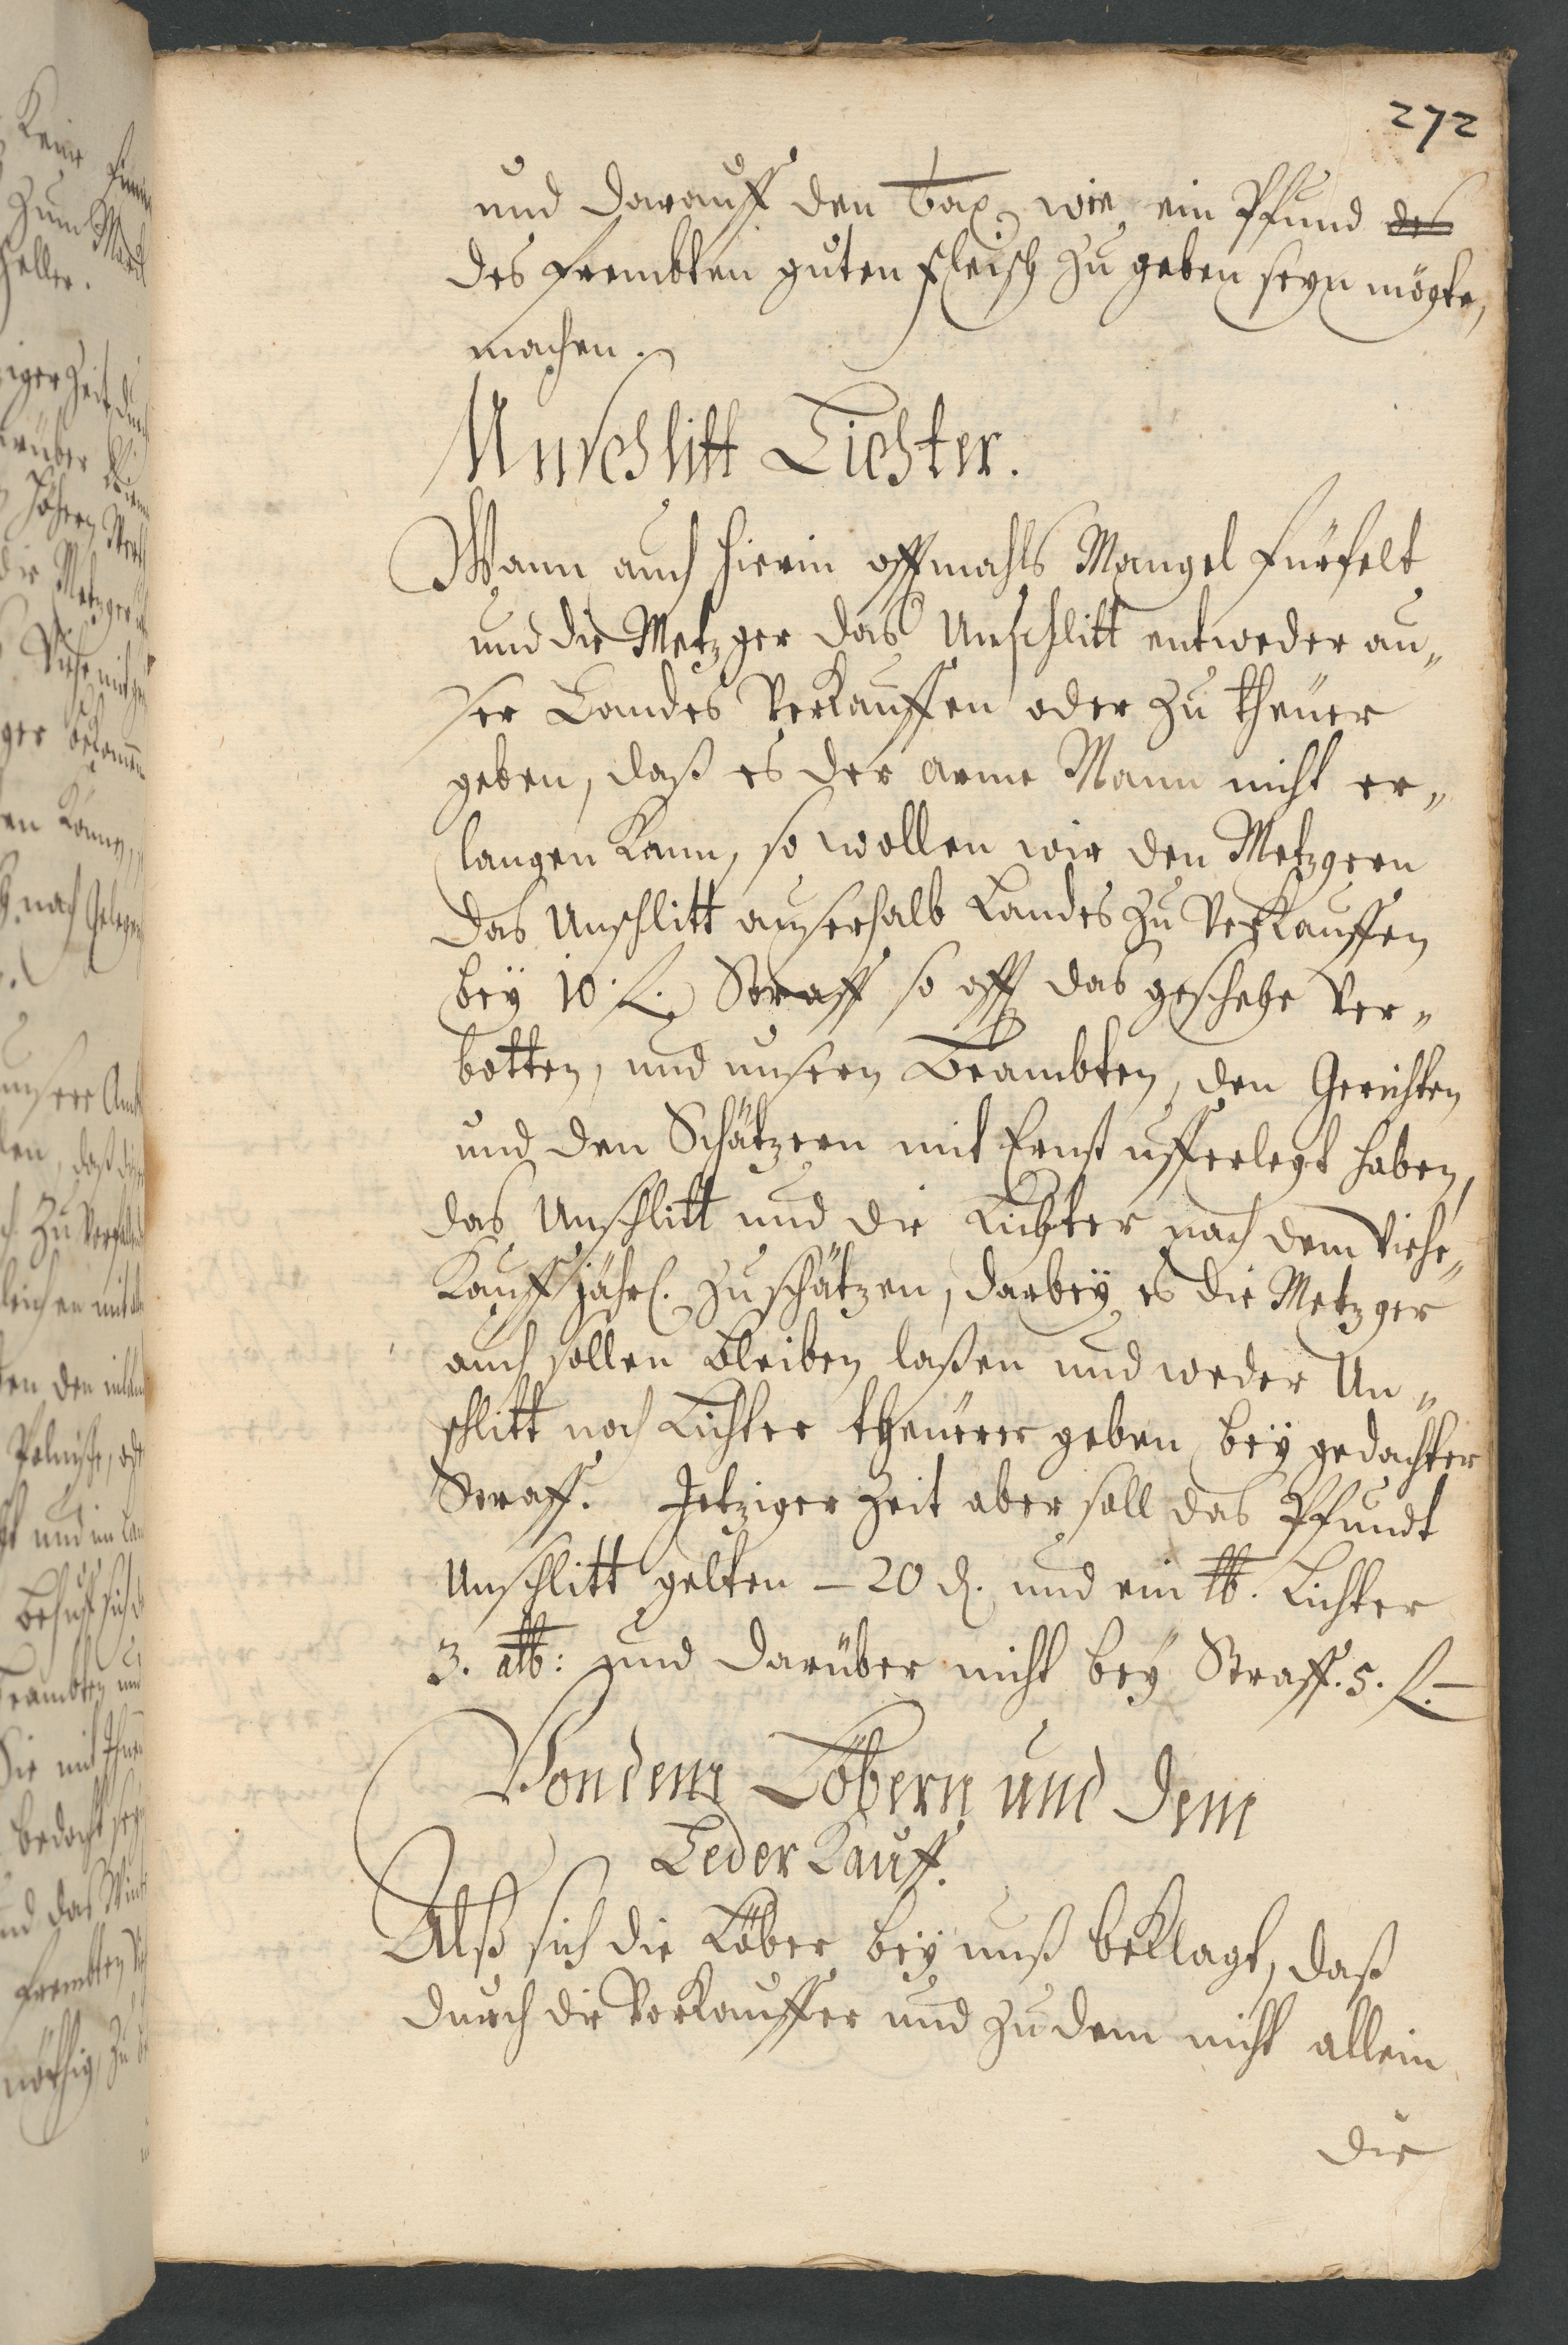 272
und darauff den Tax, wie ein Pfund des
des frembten guten Fleisch zu geben seyn mögte,
machen.
Unschlitt Lichter.
Wann auch hierin offtmahls Mangel fürfelt
und die Metzger das Unschlitt entweder au„
ser Landes verkauffen oder zu theuer
geben, daß es der arme Mann nicht er„
langen kann, so wollen wir den Metzgern
das Unschlitt auserhalb Landes zu verkauffen
bey 10. fl. Straff so offt das geschehe ver„
botten, und unsern Beambten, den Gerichten
und den Schätzern mit Ernst ufferlegt haben,
das Unschlitt und die Lichter nach dem Viehe„
kauff jährl. zu schätzen, darbey es die Metzger
auch sollen bleiben laßen und weder Un„
schlitt noch Lichter theurer geben bey gedachter
Straff. Jetziger Zeit aber soll das Pfundt
Unschlitt gelten – 20 d. und ein lb. Lichter
3. alb: und darüber nicht bey Straff. 5. fl. –
Von denen Löbern und dem
Leder Kauff.
Alß sich die Löber bey unß beklagt, daß
durch die Vorkauffer und zu dem nicht allein
die